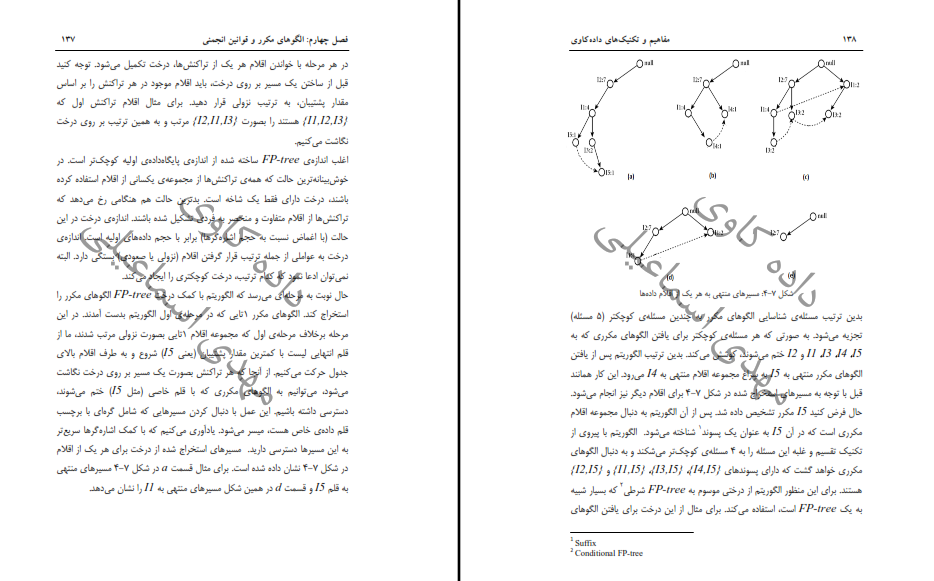 فصل چهارم: الگوهای مکرر و قوانین انجمنی ۱۳۷
در هر مرحله با خواندن اقلام هر یک از تراکنش‌ها، درخت تکمیل می‌شود. توجه کنید
قبل از ساختن یک مسیر بر روی درخت، باید اقلام موجود در هر تراکنش را بر اساس
مقدار پشتیبان، به ترتیب نزولی قرار دهید. برای مثال اقلام تراکنش اول که
{I1,I2,I3} هستند را بصورت {I2,I1,I3} مرتب و به همین ترتیب بر روی درخت
نگاشت می‌کنیم.
اغلب اندازه‌ی FP-tree ساخته شده از اندازه‌ی پایگاه‌داده‌ی اولیه کوچک‌تر است. در
خوش‌بینانه‌ترین حالت که همه‌ی تراکنش‌ها از مجموعه‌ی یکسانی از اقلام استفاده کرده
باشند، درخت دارای فقط یک شاخه است. بدترین حالت هم هنگامی رخ می‌دهد که
تراکنش‌ها از اقلام متفاوت و منحصر به فردی تشکیل شده باشند. اندازه‌ی درخت در این
حالت (با اغماض نسبت به حجم اشاره‌گرها) برابر با حجم داده‌های اولیه است. اندازه‌ی
درخت به عواملی از جمله ترتیب قرار گرفتن اقلام (نزولی یا صعودی) بستگی دارد. البته
نمی‌توان ادعا نمود که کدام ترتیب، درخت کوچکتری را ایجاد می‌کند.
حال نوبت به مرحله‌ای می‌رسد که الگوریتم با کمک درخت FP-tree الگوهای مکرر را
استخراج کند. الگوهای مکرر ۱تایی که در مرحله‌ی اول الگوریتم بدست آمدند. در این
مرحله برخلاف مرحله‌ی اول که مجموعه اقلام ۱تایی بصورت نزولی مرتب شدند، ما از
قلم انتهایی لیست با کمترین مقدار پشتیبان (یعنی I5) شروع و به طرف اقلام بالای
جدول حرکت می‌کنیم. از آنجا که هر تراکنش بصورت یک مسیر بر روی درخت نگاشت
می‌شود، می‌توانیم به الگوهای مکرری که با قلم خاصی (مثل I5) ختم می‌شوند،
دسترسی داشته باشیم. این عمل با دنبال کردن مسیرهایی که شامل گره‌ای با برچسب
قلم داده‌ی خاص هست، میسر می‌شود. یادآوری می‌کنیم که با کمک اشاره‌گرها سریع‌تر
به این مسیرها دسترسی دارید. مسیرهای استخراج شده از درخت برای هر یک از اقلام
در شکل ۷-۴ نشان داده شده است. برای مثال قسمت a در شکل ۷-۴ مسیرهای منتهی
به قلم I5 و قسمت d در همین شکل مسیرهای منتهی به I1 را نشان می‌دهد.
داده کاوی
مهدی اسماعیلی
۱۳۸ مفاهیم و تکنیک‌های داده‌کاوی
null
I2:7
I1:4
I3:1
I3:2
I5:1
(a)
null
I2:7
I1:4
I4:1
I4:1
(b)
null
I2:7
I1:2
I1:4
I3:2
I3:2
I3:2
(c)
null
I2:7
I1:2
(d)
null
I2:7
(e)
شکل ۷-۴: مسیرهای منتهی به هر یک از اقلام داده‌ها
بدین ترتیب مسئله‌ی شناسایی الگوهای مکرر به چندین مسئله‌ی کوچکتر (۵ مسئله)
تجزیه می‌شود. به صورتی که هر مسئله‌ی کوچکتر برای یافتن الگوهای مکرری که به
I5، I4، I3، I1 و I2 ختم می‌شوند، کوشش می‌کند. بدین ترتیب الگوریتم پس از یافتن
الگوهای مکرر منتهی به I5 به سراغ مجموعه اقلام منتهی به I4 می‌رود. این کار همانند
قبل با توجه به مسیرهای استخراج شده در شکل ۷-۴ برای اقلام دیگر نیز انجام می‌شود.
حال فرض کنید I5 مکرر تشخیص داده شد. پس از آن الگوریتم به دنبال مجموعه اقلام
مکرری است که در آن I5 به عنوان یک پسوند۱ شناخته می‌شود. الگوریتم با پیروی از
تکنیک تقسیم و غلبه این مسئله را به ۴ مسئله‌ی کوچک‌تر می‌شکند و به دنبال الگوهای
مکرری خواهد گشت که دارای پسوندهای {I4,I5}، {I3,I5}، {I1,I5} و {I2,I5}
هستند. برای این منظور الگوریتم از درختی موسوم به FP-tree شرطی۲ که بسیار شبیه
به یک FP-tree است، استفاده می‌کند. برای مثال از این درخت برای یافتن الگوهای
1 Suffix
2 Conditional FP-tree
داده کاوی
مهدی اسماعیلی